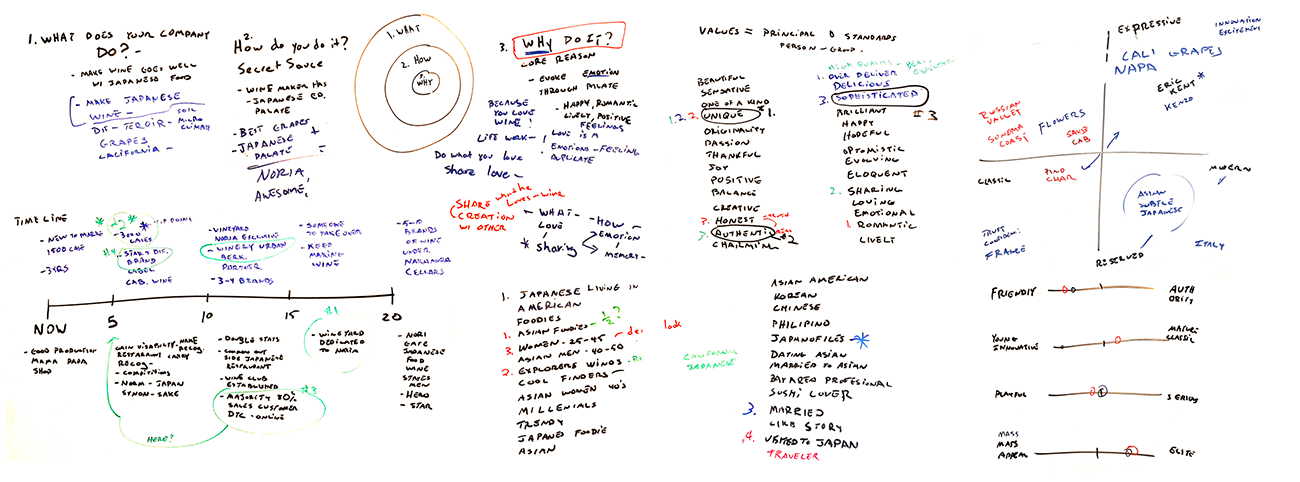 1. WHAT DOES YOUR COMPANY
DO? -
- MAKE WINE GOES WELL
W/ JAPANESE FOOD
- MAKE JAPANESE
WINE -
DIF - TEROIR -
SOIL
MICRO
CLIMATE
GRAPES
CALIFORNIA -
2.
How do you do it?
Secret Sauce
- WINE MAKER HAS
- JAPANESE
PALATE
- BEST GRAPES +
- JAPANESE
PALATE
NORIA
AWESOME,
1. WHAT
2. HOW
3.
WHY
3. WHY DO IT?
CORE REASON
- EVOKE EMOTION
THROUGH PALATE
BECAUSE
YOU LOVE
WINE!
- HAPPY, ROMANTIC
LIVELY, POSITIVE
FEELINGS
LIFE WORK -
LOVE IS A
EMOTIONS - FEELING
Do what you love
share love -
SHARE
LOVES - WINE
CREATION
W/ OTHER
- WHAT -
LOVE
* Sharing
- HOW -
EMOTION
MEMORY -
VALUES = PRINCIPAL & STANDARDS
PERSON - GROUP.
BEAUTIFUL
SENSATIVE
ONE OF A KIND
1. 2. 2. UNIQUE * 1.
ORIGINALITY
PASSION
THANKFUL
JOY
POSITIVE
BALANCE
CREATIVE
2. HONEST
3. AUTHENTIC #2
CHARMING
1. OVER DELIVER
DELICIOUS
3. SOPHISTICATED
BRILLIANT #3
HAPPY
HOPEFUL
OPTOMISTIC
EVOLVING
ELOQUENT
2. SHARING
LOVING
EMOTIONAL
1 ROMANTIC
LIVELY
EXPRESSIVE
INNOVATION
EXCITEMENT
CALI GRAPES
NAPA
ERIC
KENT *
KENZO
RUSSIAN
VALLEY
SONOMA
COAST
FLOWERS
SAUV
CAB
CLASSIC
PINO
CHAR
MODERN
ASIAN
SUBTLE
JAPANESE
TRUST
FRANCE
ITALY
RESERVED
TIME LINE
- NEW TO MARKET
1500 CASE
- 3YRS
* #2 *
- TIP POINT
- 3000
CASES
#4 - START DIF.
BRAND
LABEL
CAB. WINE
- VINEYARD
NORIA EXCLUSIVE
- WINERY URBAN
BERK.
PARTNER
- 3-4 BRANDS
- SOMEONE
TO TAKE OVER
- KEEP
MAKING
WINE
- 5-6
BRANDS
OF WINE
UNDER
NAKAMURA
CELLARS
NOW 5 10 15 20
- GOOD PRODUCTION
MAMA PAPA
SHOP
GAIN VISABILITY - NAME
RECOG.
RESTARAUNT CARRY
RECOG -
- COMPETITIONS
- NORIA - JAPAN
SYNON - SAKE
HERE?
- DOUBLE STATS
- COMMON OUT
SIDE JAPANESE
RESTAURANT
- WINE CLUB
ESTABLISHED
#3
- MAJORITY 80%
SALES CUSTOMER
DTC - ONLINE
#1
- VINEYARD
DEDICATED
TO NORIA
- NORI
CAFE
JAPANESE
FOOD
WINE
STATES
MEN
- HERO
- STAR
1. JAPANESE LIVING IN
AMERICAN
FOODIES
1. ASIAN FOODIES - 1/2?
3. WOMEN - 25-45 -
ASIAN MEN - 40-50
2. EXPLORERS WINOS -
COOL FINDERS -
ASIAN WOMEN 40's
MILLENIALS
TRENDY
JAPANED FOODIE
ASIAN
look
CALIFORNIA
JAPANESE
ASIAN AMERICAN
KOREAN
CHINESE
PHILIPINO
JAPANOFILES - *
DATING ASIAN
MARRIED TO ASIAN
BAY AREA PROFESIONAL
SUSHI LOVER
3. MARRIED
LIKE STORY
4. VISITED TO JAPAN
TRAVELER
FRIENDLY
AUTH
ORITY
YOUNG
INNOVATIVE
MATURE
CLASSIC
PLAYFUL
SERIOUS
MASS
MASS
APPEAL
ELITE